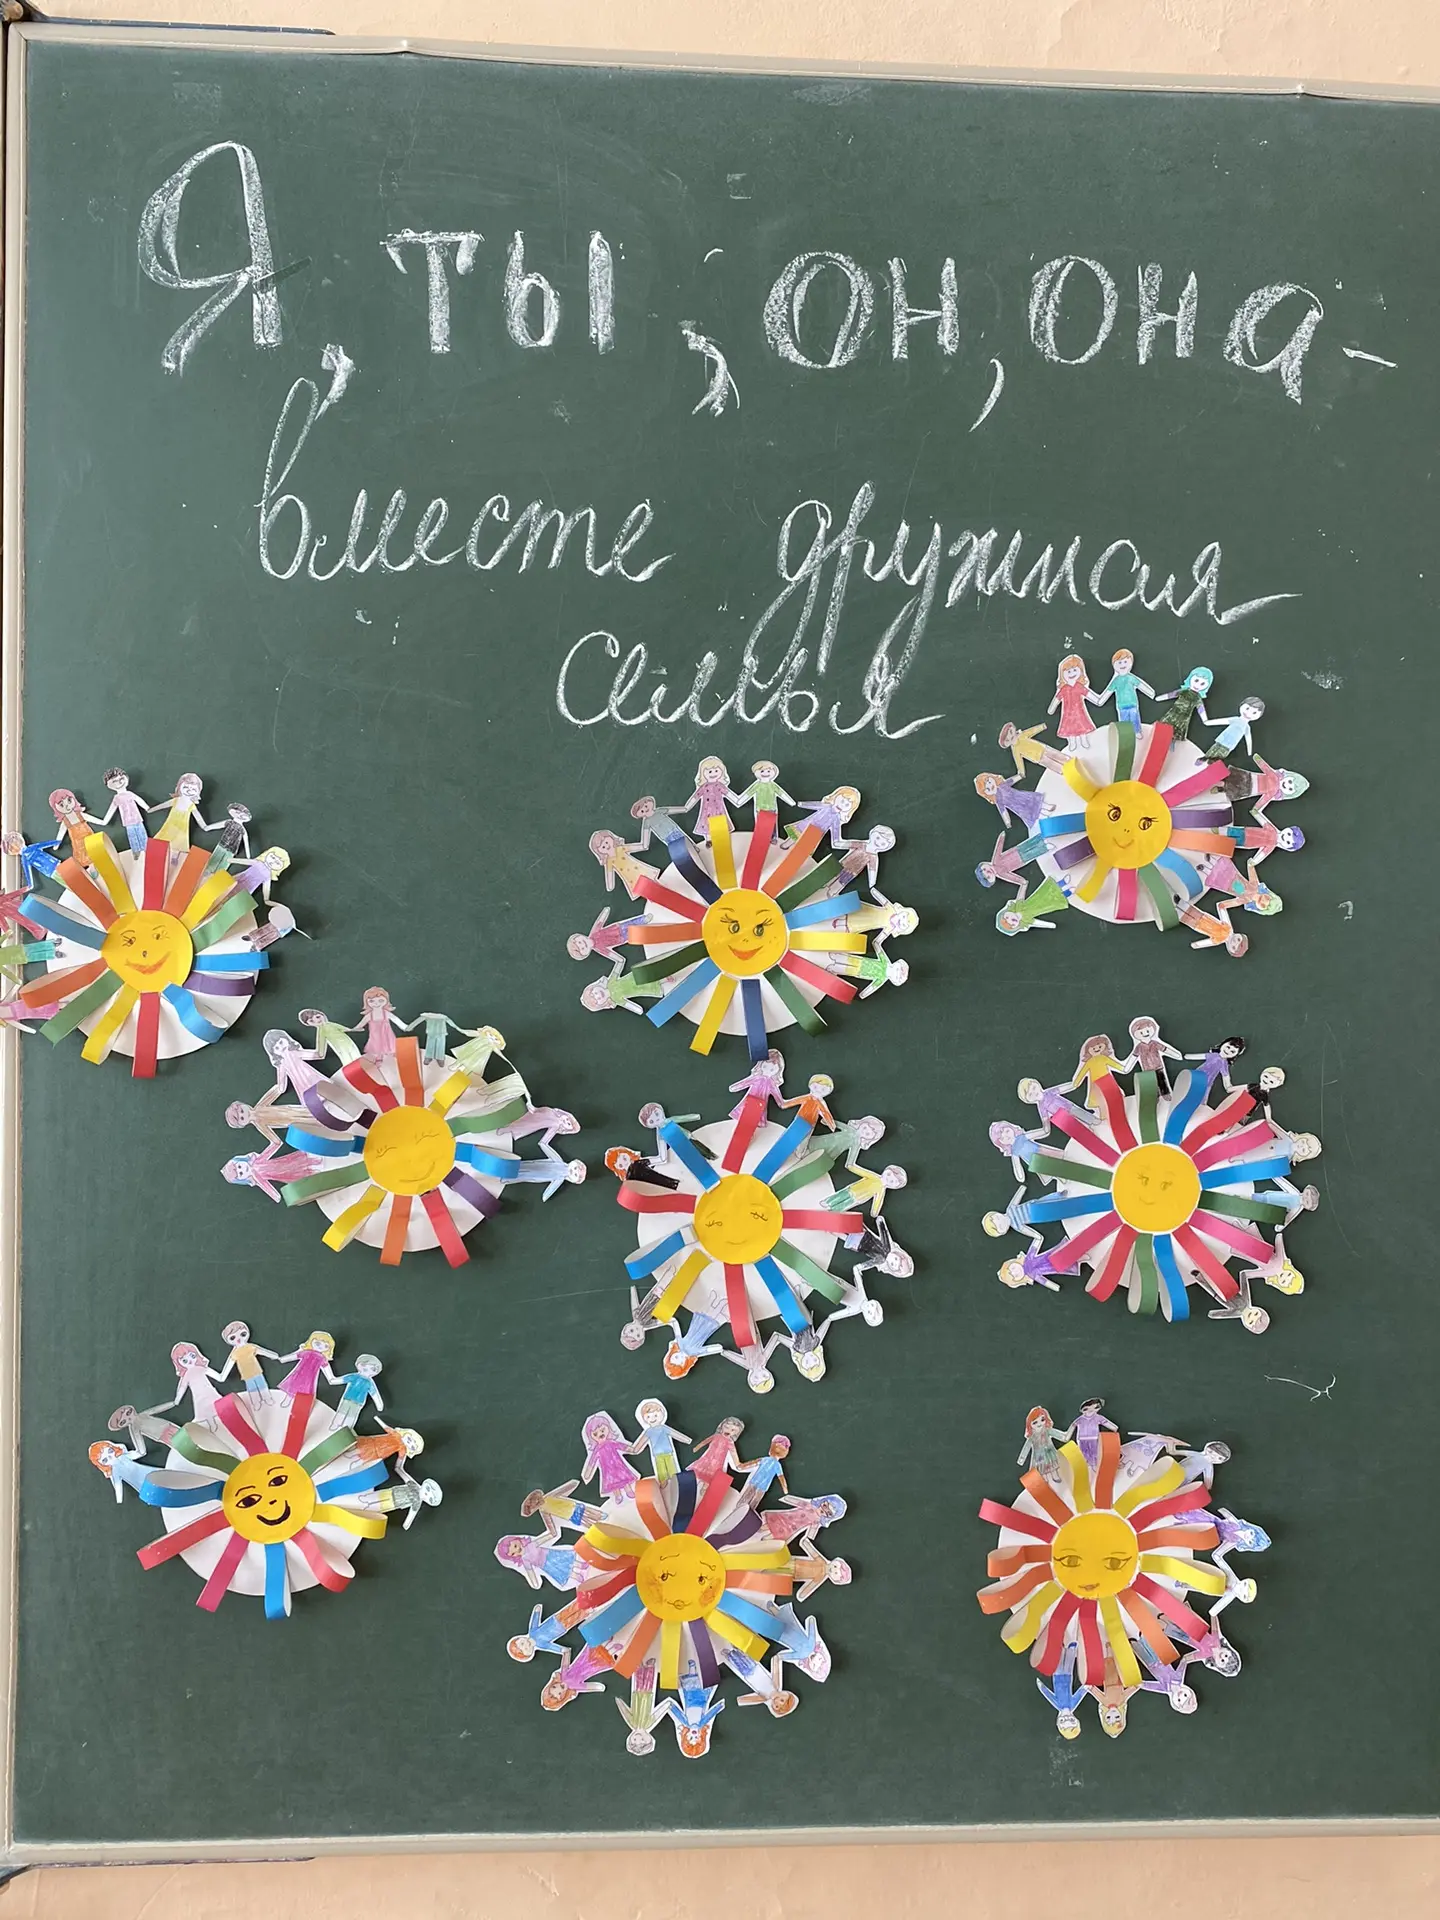 Я, ты, он, она-
вместе дружная
семья